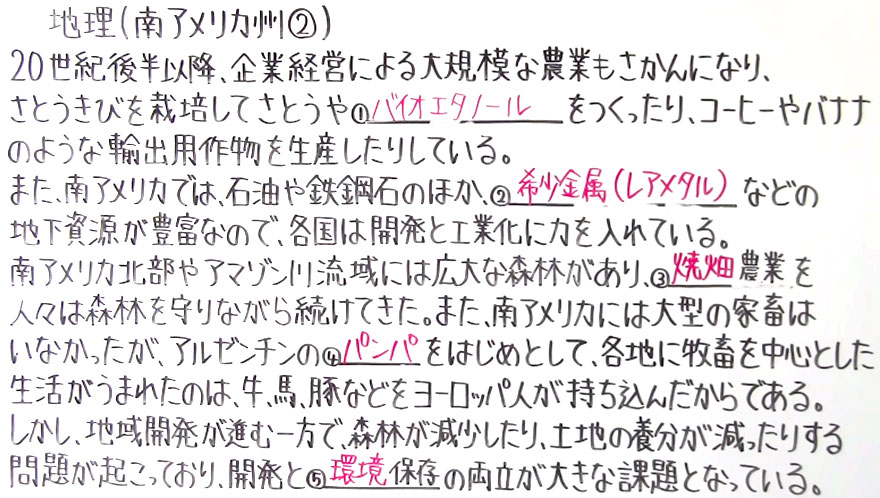 地理(南アメリカ州②)
20世紀後半以降、企業経営による大規模な農業もさかんになり、
さとうきびを栽培してさとうや①バイオエタノールをつくったり、コーヒーやバナナ
のような輸出用作物を生産したりしている。
また、南アメリカでは、石油や鉄鋼石のほか、②希少金属(レアメタル)などの
地下資源が豊富なので、各国は開発と工業化に力を入れている。
南アメリカ北部やアマゾン川流域には広大な森林があり、③焼畑農業を
人々は森林を守りながら続けてきた。また、南アメリカには大型の家畜は
いなかったが、アルゼンチンの④パンパをはじめとして、各地に牧畜を中心とした
生活がうまれたのは、牛、馬、豚などをヨーロッパ人が持ち込んだからである。
しかし、地域開発が進む一方で、森林が減少したり、土地の養分が減ったりする
問題が起こっており、開発と⑤環境保存の両立が大きな課題となっている。